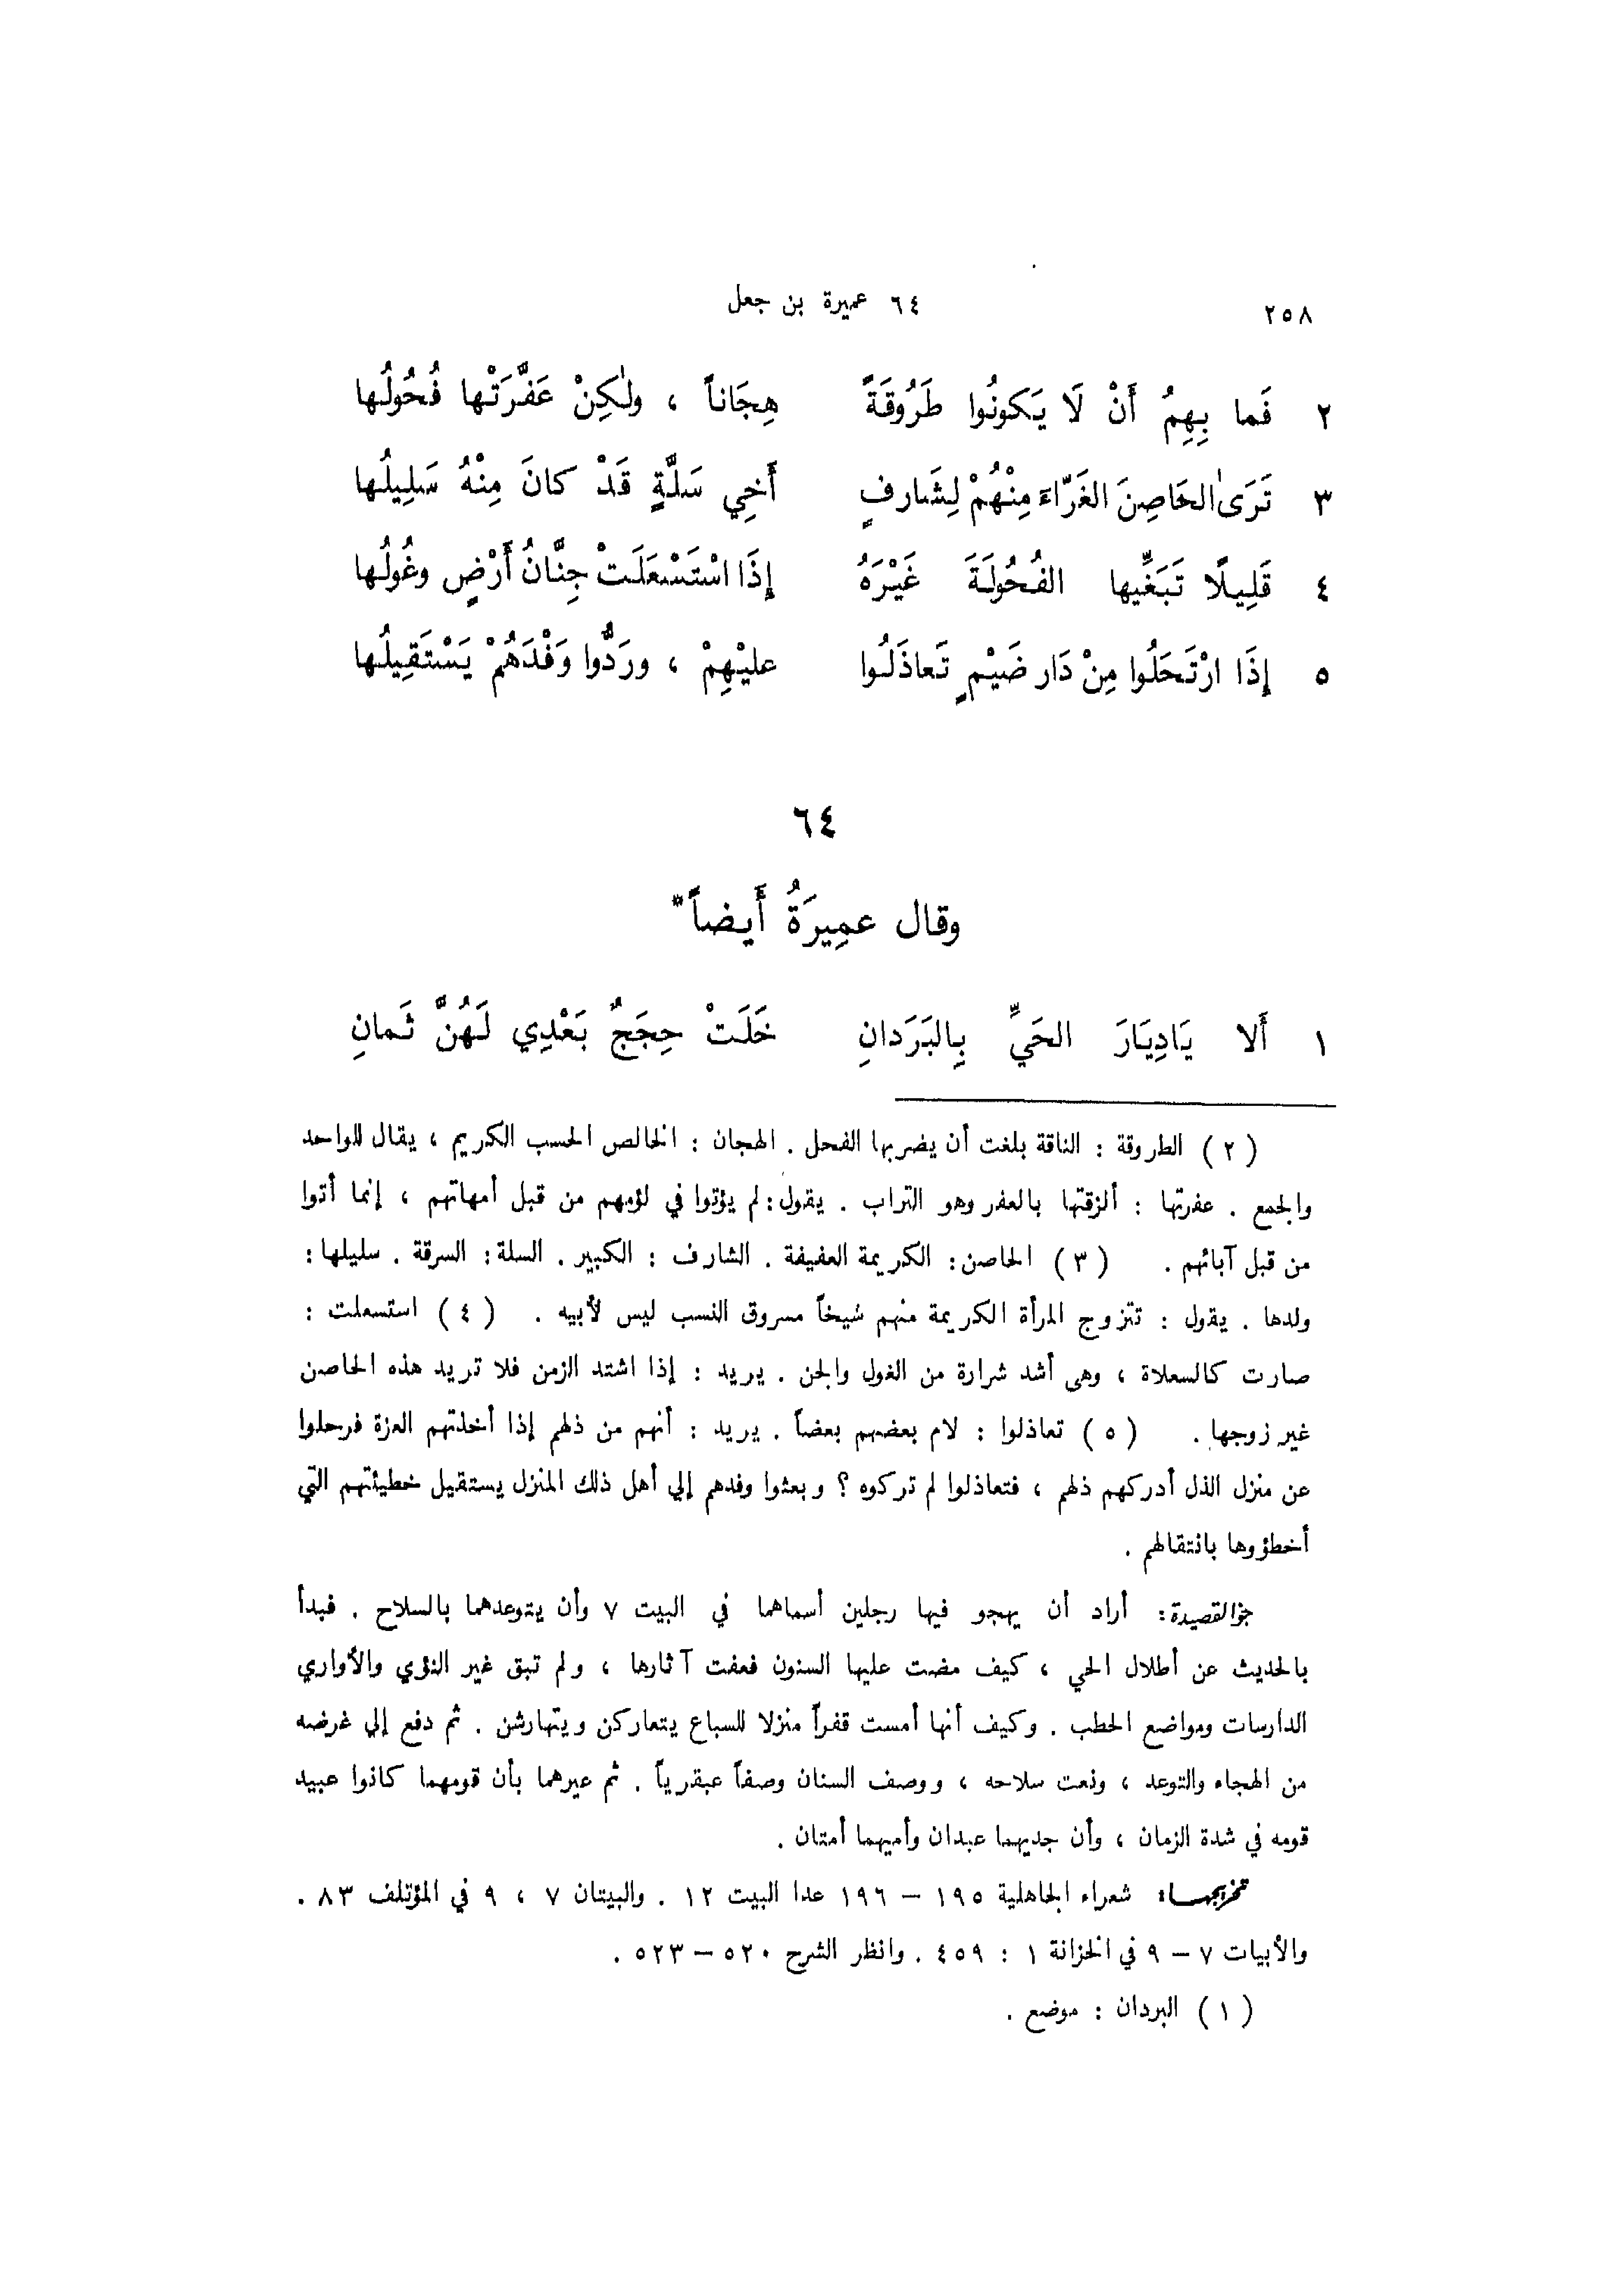 ٢٥٨ ٦٤ عميرة بن جعل
٢ فَما بِهِمُ أَنْ لَا يَكونُوا طَرُوقَةً هِجَاناً ، ولٰكِنْ عَفَّرَتْها فُحُولُها
٣ تَرَىٰ الحَاصِنَ الغَرَّاءَ مِنْهُمْ لِشَارفٍ أَخِي سَلَّةٍ قَدْ كانَ مِنْهُ سَلِيلُها
٤ قَلِيلًا تَبَغِّيها الفُحُولَةَ غَيْرَهُ إِذَا اسْتَسْعَلَتْ جِنَّانُ أَرْضٍ وغُولُها
٥ إِذَا ارْتَحَلُوا مِنْ دَار ضَيْمٍ تَعاذَلُوا عليْهِمْ ، وردُّوا وَفْدَهُمْ يَسْتَقِيلُها
٦٤
وقال عمِيرَةُ أَيضاً*
١ أَلا يَادِيَارَ الحَيِّ بِالبَرَدانِ خَلَتْ حِجَجٌ بَعْدِي لَهُنَّ ثَمانِ
( ٢ ) الطروقة : الناقة بلغت أن يضربها الفحل . الهجان : الخالص الحسب الكريم ، يقال للواحد
والجمع . عفرتها : ألزقتها بالعفر وهو التراب . يقول : لم يؤتوا في لؤمهم من قبل أمهاتهم ، إنما أتوا
من قبل آبائهم . ( ٣ ) الحاصن : الكريمة العفيفة . الشارف : الكبير . السلة : السرقة . سليلها :
ولدها . يقول : تتزوج المرأة الكريمة منهم شيخاً مسروق النسب ليس لأبيه . ( ٤ ) استسعلت :
صارت كالسعلاة ، وهى أشد شرارة من الغول والجن . يريد : إذا اشتد الزمن فلا تريد هذه الحاصن
غير زوجها . ( ٥ ) تعاذلوا : لام بعضهم بعضاً . يريد : أنهم من ذلهم إذا أخذتهم العزة فرحلوا
عن منزل الذل أدركهم ذلهم ، فتعاذلوا لم تركوه ؟ وبعثوا وفدهم إلى أهل ذلك المنزل يستقيل خطيئتهم التي
أخطؤوها بانتقالهم .
جوّ القصيدة : أراد أن يهجو فيها رجلين أسماهما في البيت ٧ وأن يتوعدهما بالسلاح . فبدأ
بالحديث عن أطلال الحي ، كيف مضت عليها السنون فعفت آثارها ، ولم تبق غير النؤي والأواري
الدارسات ومواضع الحطب . وكيف أنها أمست قفراً منزلا للسباع يتعاركن ويتهارشن . ثم دفع إلى غرضه
من الهجاء والتوعد ، ونعت سلاحه ، ووصف السنان وصفاً عبقرياً . ثم عيرهما بأن قومهما كانوا عبيد
قومه في شدة الزمان ، وأن جديهما عبدان وأميهما أمتان .
تخريجها : شعراء الجاهلية ١٩٥ – ١٩٦ عدا البيت ١٢ . والبيتان ٧ ، ٩ في المؤتلف ٨٣ .
والأبيات ٧ – ٩ في الخزانة ١ : ٤٥٩ . وانظر الشرح ٥٢٠ – ٥٢٣ .
( ١ ) البردان : موضع .